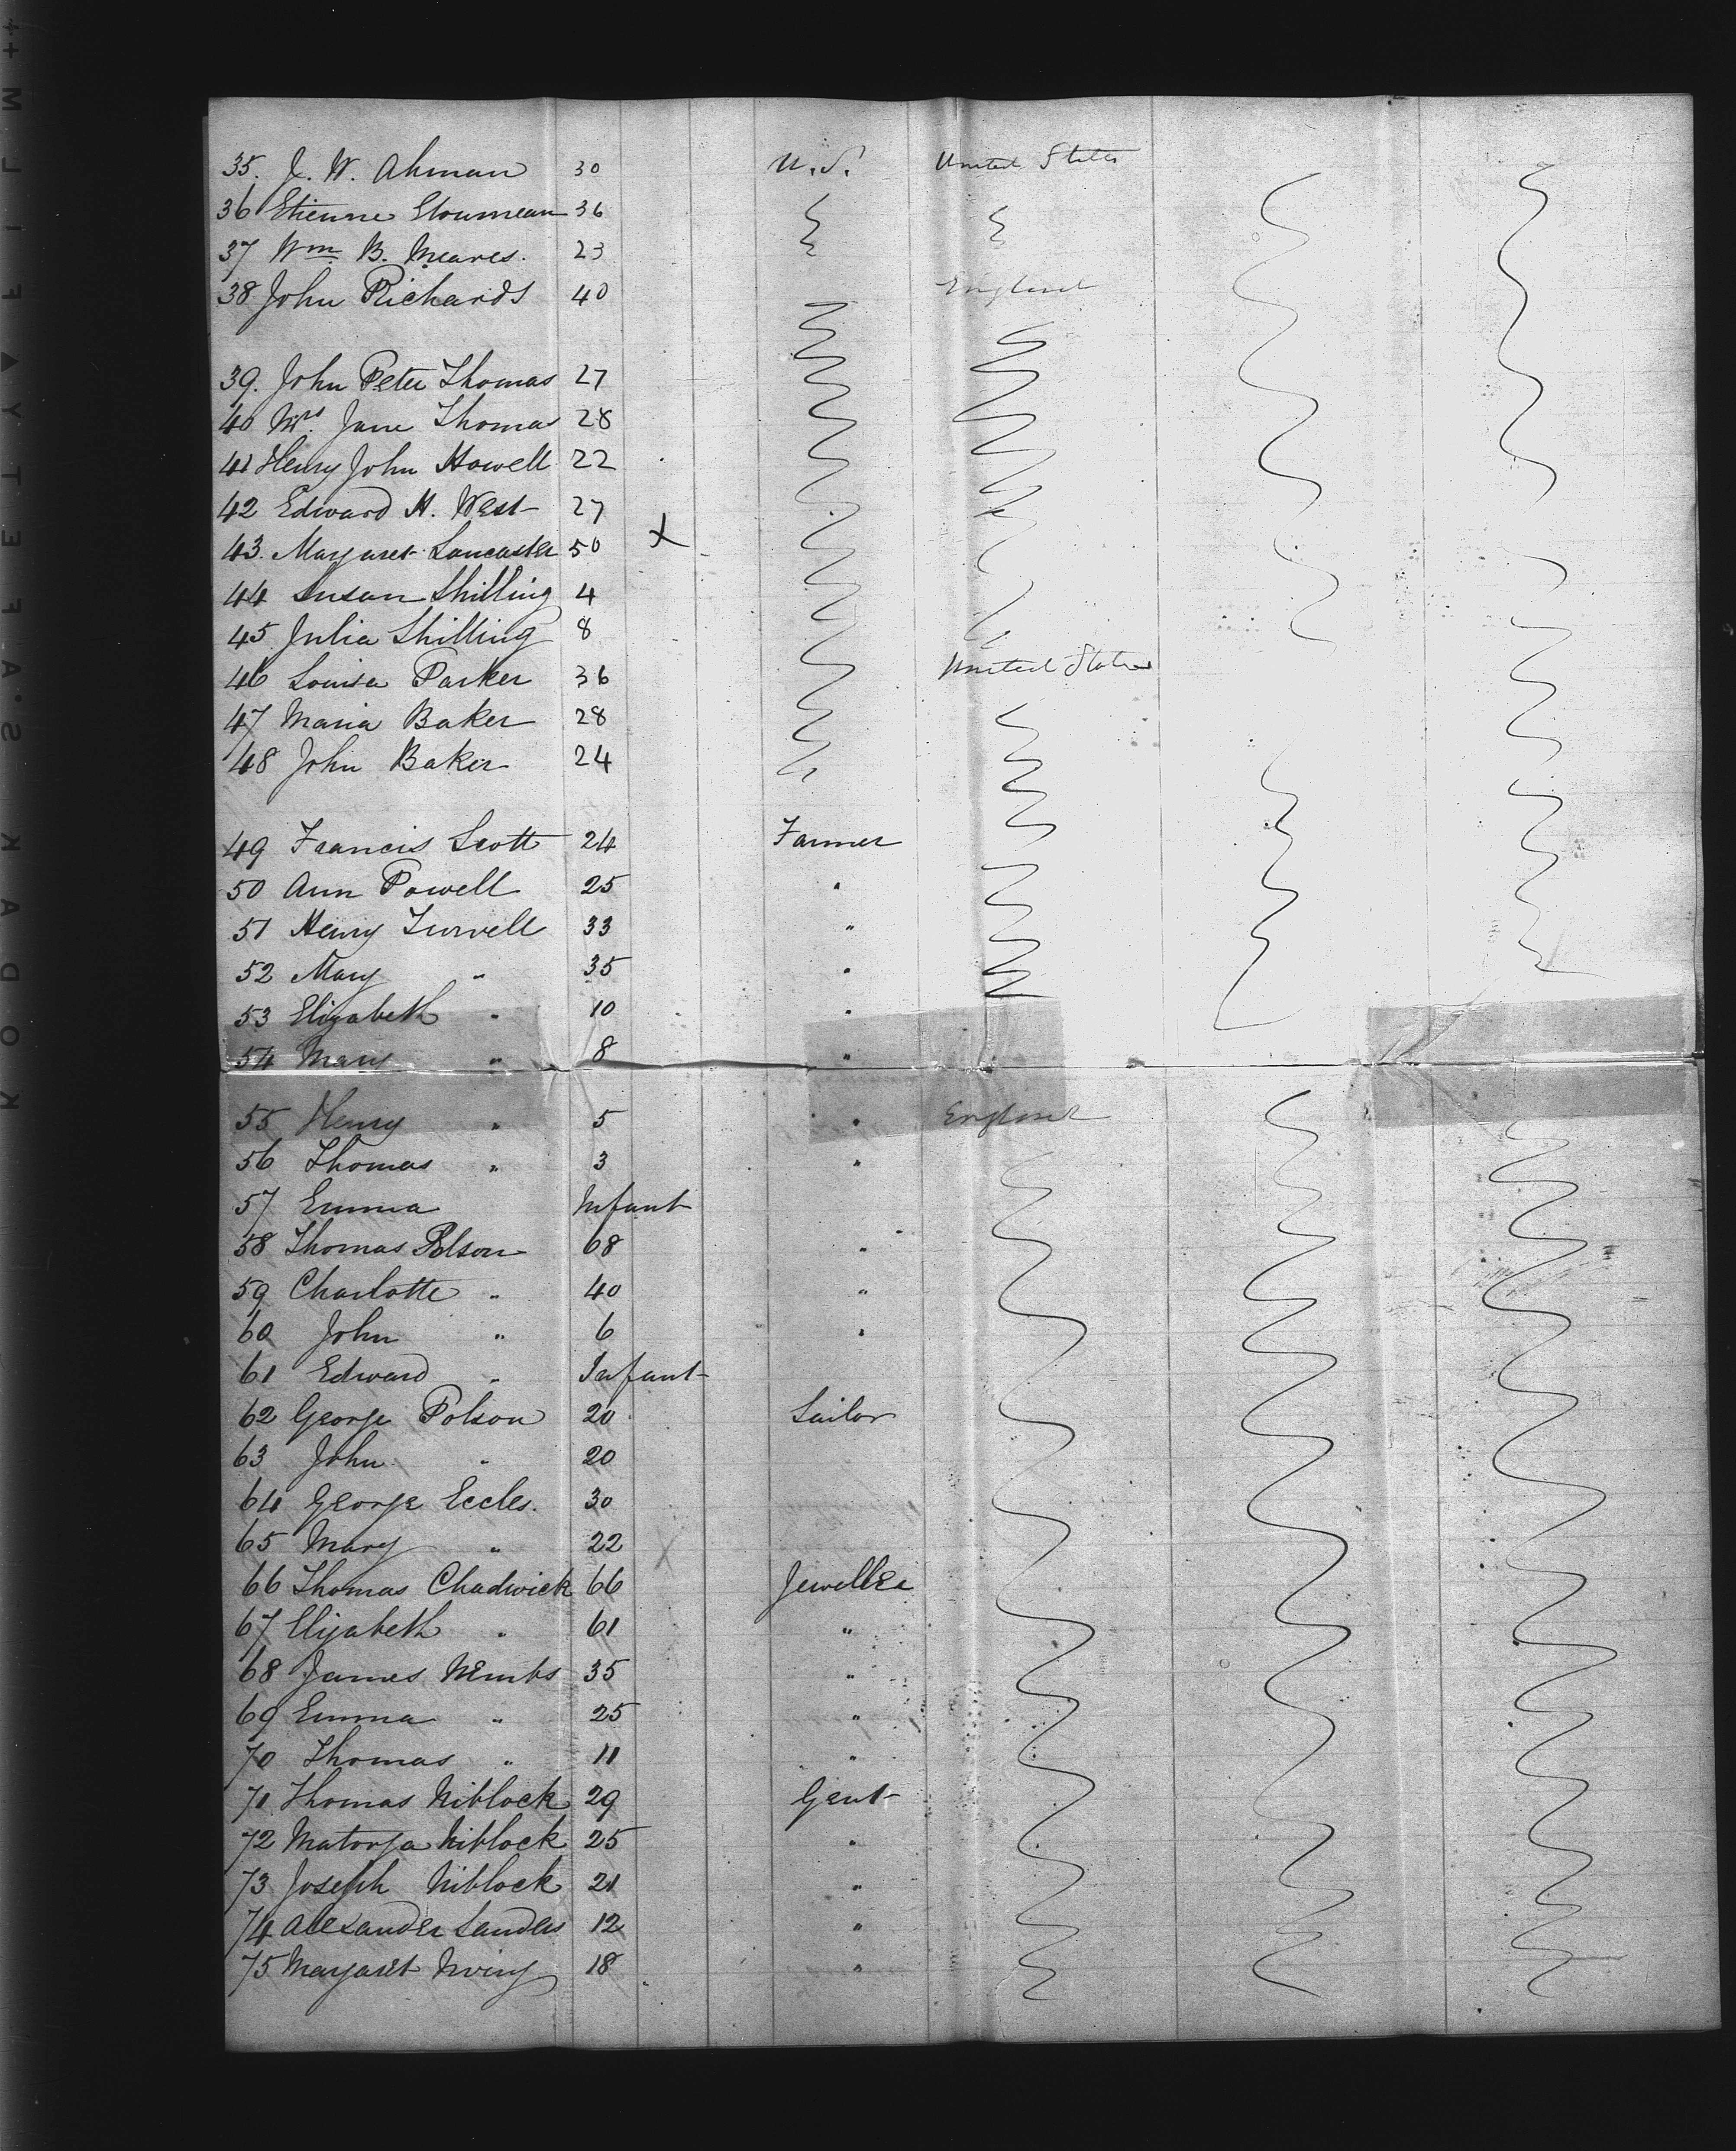 35. J. W. Ahman 30 U.S. United States
36 Etienne 36
37 Wm. B. Meares. 23
38 John Richards 40 England
39. John Peter Thomas 27
40 Mrs. Jane Thomas 28
41 Henry John Howell 22
42 Edward H. West 27
43. Margaret Lancaster 50 X
44 Susan Shilling 4
45 Julia Shilling 8
46 Louisa Parker 36 United States
47 Maria Baker 28
48 John Baker 24
49 Francis Scott 24 Farmer
50 Ann Powell 25 "
51 Henry Turvell 33 "
52 Mary " 35 "
53 Elizabeth " 10 "
54 Mary " 8 "
55 Henry " 5 " England
56 Thomas " 3 "
57 Emma Infant
58 Thomas Polson 68 "
59 Charlotte " 40 "
60 John " 6 "
61 Edward " Infant
62 George Polson 20 Sailor
63 John " 20
64 George Eccles. 30
65 Mary " 22 X
66 Thomas Chadwick 66 Jeweller
67 Elizabeth " 61 "
68 James 35 "
69 Emma " 25 "
70 Thomas " 11 "
71 Thomas Niblock 29 Gent
72 Niblock 25 "
73 Joseph Niblock 21 "
74 Alexander Sanders 12 "
75 Margaret Irving 18 "
KODAK'S.AFETY▲FILM ++